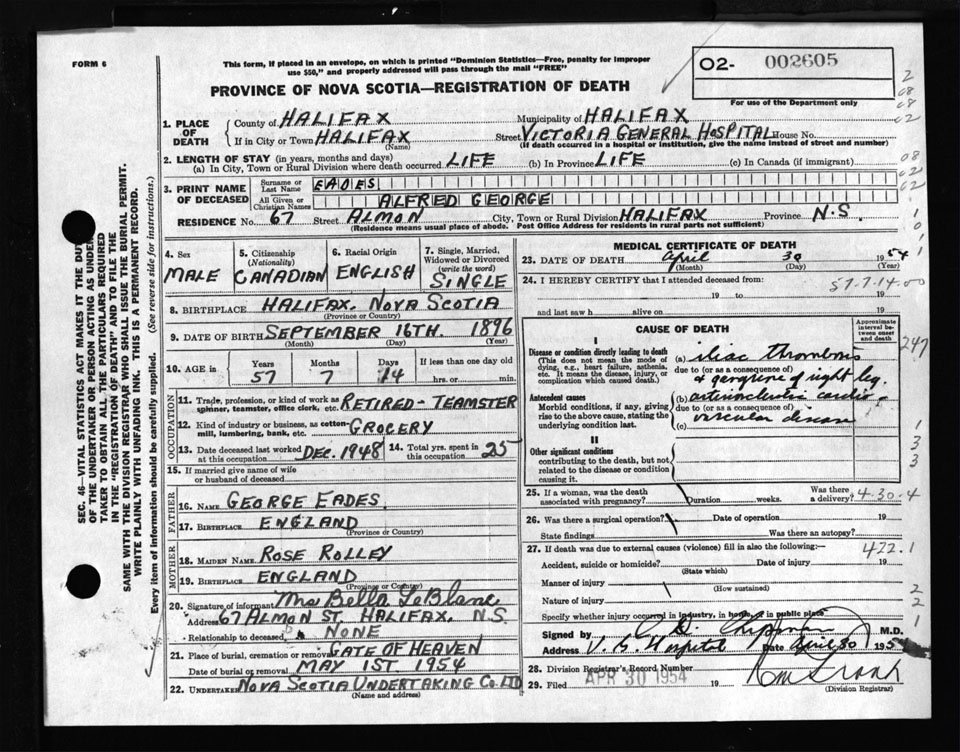 FORM 6
This form, if placed in an envelope, on which is printed "Dominion Statistics—Free, penalty for improper
use $50," and properly addressed will pass through the mail "FREE"
O2- 002605
For use of the Department only
PROVINCE OF NOVA SCOTIA—REGISTRATION OF DEATH
1. PLACE OF DEATH
County of HALIFAX Municipality of HALIFAX
If in City or Town HALIFAX Street VICTORIA GENERAL HOSPITAL House No.
(Name) (If death occurred in a hospital or institution, give the name instead of street and number)
2. LENGTH OF STAY (in years, months and days)
(a) In City, Town or Rural Division where death occurred LIFE (b) In Province LIFE (c) In Canada (if immigrant)
3. PRINT NAME OF DECEASED
Surname or Last Name EADES
All Given or Christian Names ALFRED GEORGE
RESIDENCE No. 67 Street ALMON City, Town or Rural Division HALIFAX Province N.S.
(Residence means usual place of abode. Post Office Address for residents in rural parts not sufficient)
4. Sex MALE
5. Citizenship (Nationality) CANADIAN
6. Racial Origin ENGLISH
7. Single, Married, Widowed or Divorced (write the word) SINGLE
8. BIRTHPLACE HALIFAX, NOVA SCOTIA
(Province or Country)
9. DATE OF BIRTH SEPTEMBER 16TH. 1896
(Month) (Day) (Year)
10. AGE in Years 57 Months 7 Days 14 If less than one day old hrs. or min.
OCCUPATION
11. Trade, profession or kind of work as spinner, teamster, office clerk, etc. RETIRED - TEAMSTER
12. Kind of industry or business, as cotton-mill, lumbering, bank, etc. GROCERY
13. Date deceased last worked at this occupation DEC. 1948
14. Total yrs. spent in this occupation 25
15. If married give name of wife or husband of deceased
FATHER
16. NAME GEORGE EADES
17. BIRTHPLACE ENGLAND
(Province or Country)
MOTHER
18. MAIDEN NAME ROSE ROLLEY
19. BIRTHPLACE ENGLAND
(Province or Country)
20. Signature of informant Mrs Bella LeBlanc
Address 67 ALMON ST. HALIFAX, N.S.
Relationship to deceased NONE
21. Place of burial, cremation or removal GATE OF HEAVEN
Date of burial or removal MAY 1ST 1954
22. UNDERTAKER NOVA SCOTIA UNDERTAKING CO. LTD
(Name and address)
MEDICAL CERTIFICATE OF DEATH
23. DATE OF DEATH April 30 1954
(Month) (Day) (Year)
24. I HEREBY CERTIFY that I attended deceased from: 57-7-14-00
19 to 19
and last saw h alive on 19
CAUSE OF DEATH
Approximate interval between onset and death
I
Disease or condition directly leading to death
(This does not mean the mode of dying, e.g., heart failure, asthenia, etc. It means the disease, injury, or complication which caused death.)
(a) iliac thrombosis
due to (or as a consequence of)
& gangrene of right leg.
Antecedent causes
Morbid conditions, if any, giving rise to the above cause, stating the underlying condition last.
(b) arteriosclerotic cardio-
due to (or as a consequence of)
vascular disease
(c)
II
Other significant conditions
contributing to the death, but not related to the disease or condition causing it.
247
25. If a woman, was the death associated with pregnancy? Duration weeks. Was there a delivery? 4-30-4
26. Was there a surgical operation? Date of operation 19
State findings Was there an autopsy?
27. If death was due to external causes (violence) fill in also the following:— 422.1
Accident, suicide or homicide? Date of injury 19
(State which)
Manner of injury
(How sustained)
Nature of injury
Specify whether injury occurred in industry, in home, in public place
Signed by M.D.
Address V. G. Hospital Date April 30 1954
28. Division Registrar's Record Number
29. Filed APR 30 1954 19
(Division Registrar)
SEC. 46—VITAL STATISTICS ACT MAKES IT THE DUTY
OF THE UNDERTAKER OR PERSON ACTING AS UNDER-
TAKER TO OBTAIN ALL THE PARTICULARS REQUIRED
IN THE "REGISTRATION OF DEATH" AND TO FILE THE
SAME WITH THE DIVISION REGISTRAR WHO SHALL ISSUE THE BURIAL PERMIT.
WRITE PLAINLY WITH UNFADING INK. THIS IS A PERMANENT RECORD.
Every item of information should be carefully supplied. (See reverse side for instructions.)